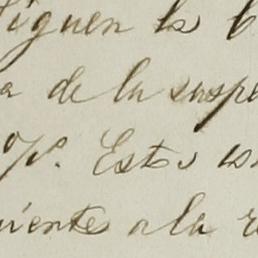 siguen la
a de la suspe
%. Estos
uientes a la